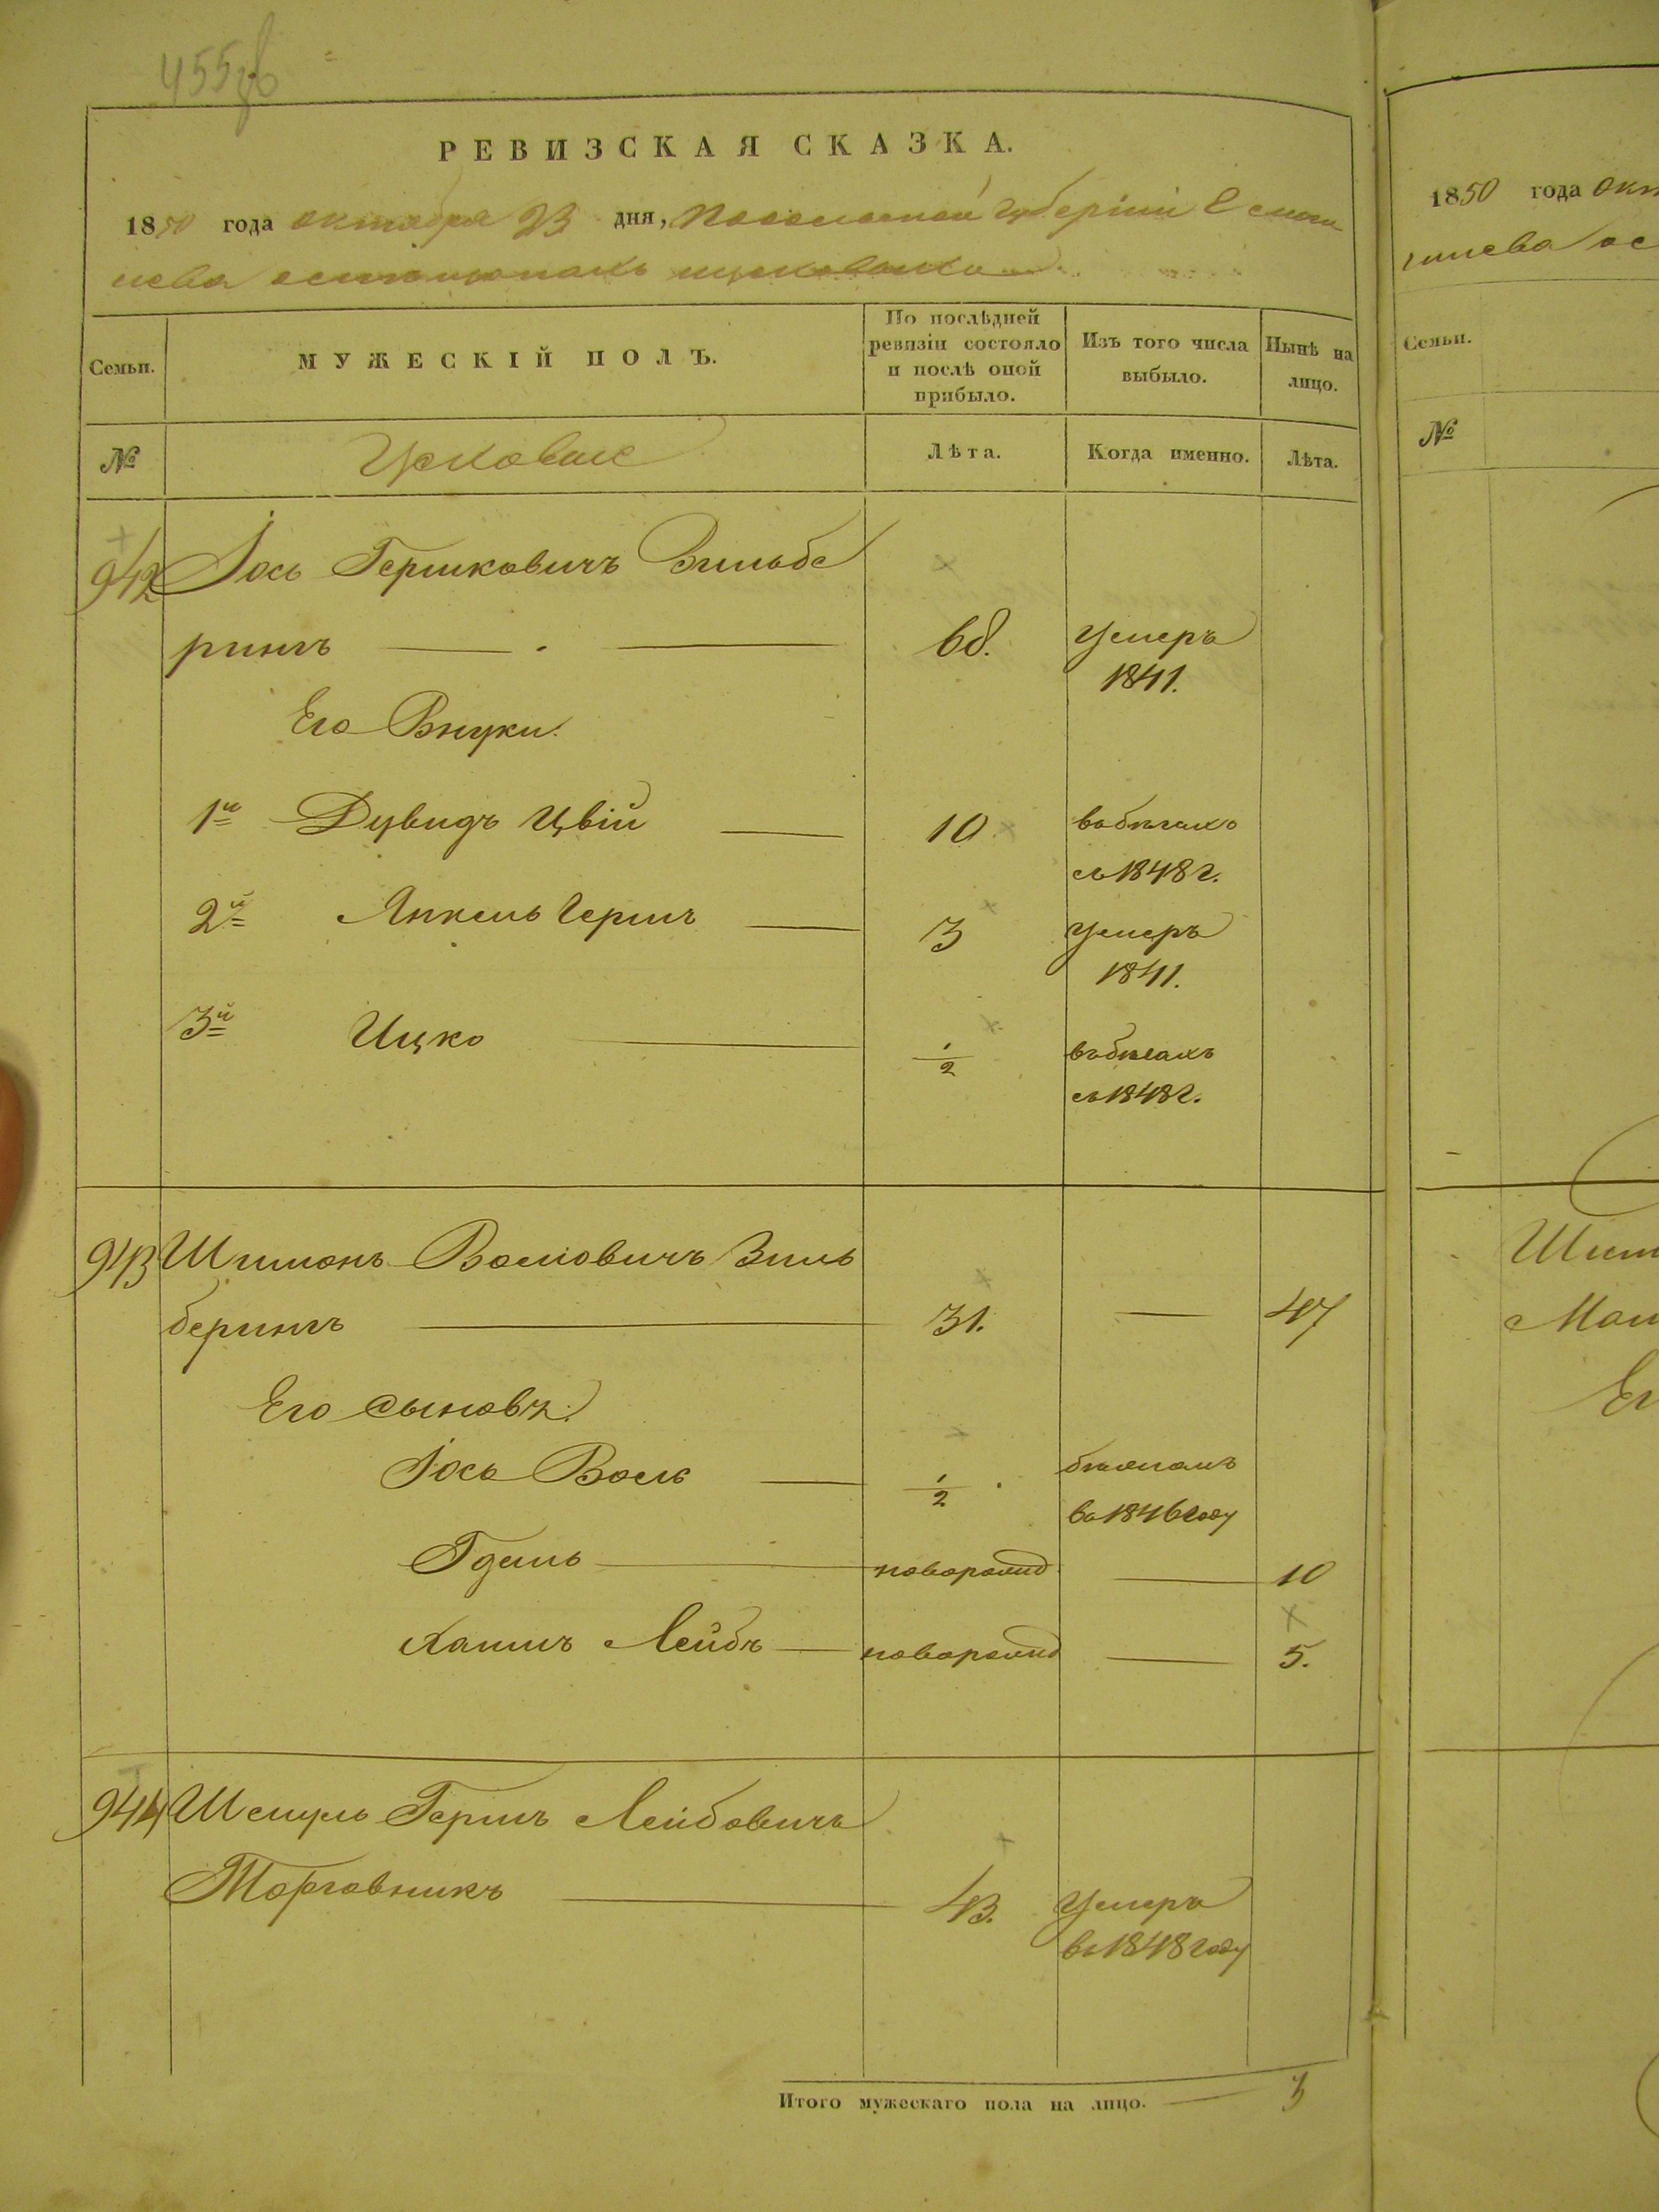 455
РЕВИЗСКАЯ СКАЗКА.
1850 года октября 23 дня, Подольской губерніи
Семьи.
МУЖЕСКІЙ ПОЛЪ.
По послѣдней ревизіи состояло и послѣ оной прибыло.
Изъ того числа выбыло.
Нынѣ на лицо.
№
Лѣта.
Когда именно.
Лѣта.
942 Іось Гершковичъ Зильбе
рингъ 68. умеръ
1841.
Его Внуки.
1й Дувидъ Цвій 10 въ бѣгахъ
съ 1848 г.
2й Янкель Гершъ 3 умеръ
1841.
3й Ицко 1/2 въ бѣгахъ
съ 1848 г.
943 Шимонъ Волковичъ Зиль
берингъ 31. 47
Его сыновъя.
Іось Волъ 1/2
въ 1846 году
новорожд 10
Лейбъ новорожд 5.
944 Шмуль Гершъ Лейбовичъ
Торговникъ 43. умеръ
въ 1848 году
Итого мужескаго пола на лицо. 3
1850 года окт
Семьи.
№